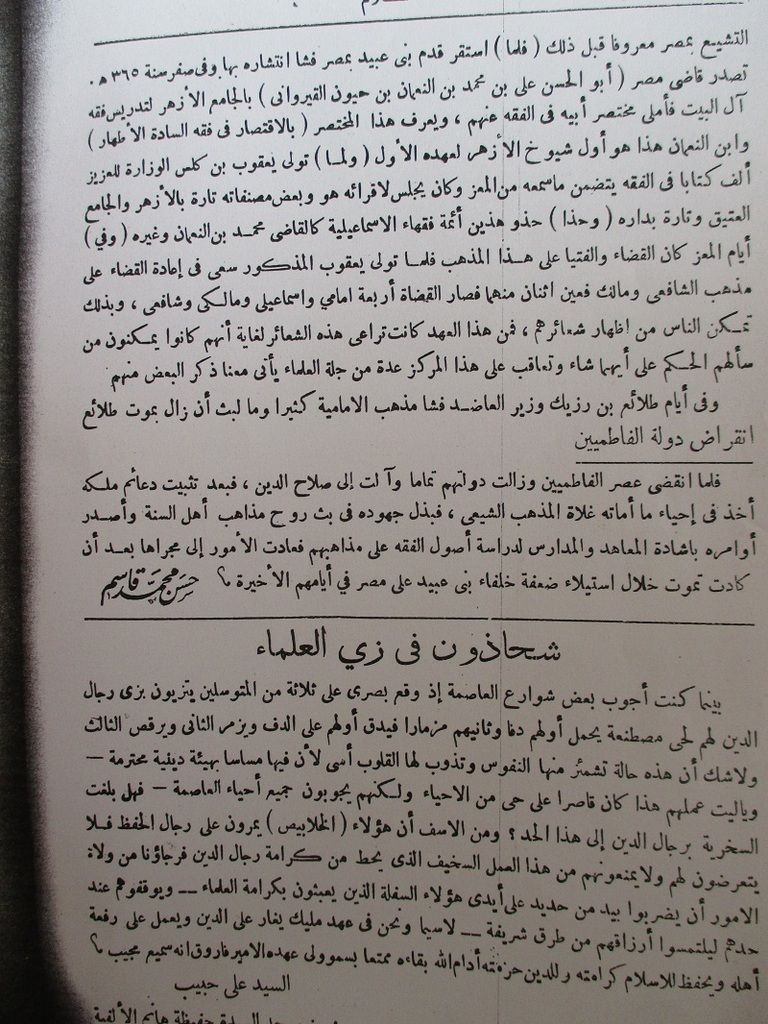 التشيع بمصر معروفا قبل ذلك ( فلما ) استقر قدم بنى عبيد بمصر فشا انتشاره بها وفى صفر سنة ٣٦٥ ه .
تصدر قاضى مصر ( أبو الحسن على بن محمد بن النعمان بن حيون القيروانى ) بالجامع الأزهر لتدريس فقه
آل البيت فأملى مختصر أبيه فى الفقه عنهم ، ويعرف هذا المختصر ( بالاقتصار فى فقه السادة الأطهار )
وابن النعمان هذا هو أول شيوخ الأزهر لعهده الأول ( ولما ) تولى يعقوب بن كلس الوزارة للعزيز
ألف كتابا فى الفقه يتضمن ماسمعه من المعز وكان يجلس لاقرائه هو وبعض مصنفاته تارة بالأزهر والجامع
العتيق وتارة بداره ( وحذا ) حذو هذين أئمة فقهاء الاسماعيلية كالقاضى محمد بن النعمان وغيره ( وفي )
أيام المعز كان القضاء والفتيا على هذا المذهب فلما تولى يعقوب المذكور سعى فى إعادة القضاء على
مذهب الشافعى ومالك فعين اثنان منهما فصار القضاة أربعة امامي واسماعيلى ومالكى وشافعى ، وبذلك
تمكن الناس من اظهار شعائرهم ، فمن هذا العهد كانت تراعى هذه الشعائر لغاية أنهم كانوا يمكنون من
سألهم الحكم على أيهما شاء وتعاقب على هذا المركز عدة من جلة العلماء يأتى معنا ذكر البعض منهم
وفى أيام طلائع بن رزيك وزير العاضد فشا مذهب الامامية كثيرا وما لبث أن زال بموت طلائع
انقراض دولة الفاطميين
فلما انقضى عصر الفاطميين وزالت دولتهم تماما وآلت إلى صلاح الدين ، فبعد تثبيت دعائم ملكه
أخذ فى إحياء ما أماته غلاة المذهب الشيعى ، فبذل جهوده فى بث روح مذاهب أهل السنة وأصدر
أوامره باشادة المعاهد والمدارس لدراسة أصول الفقه على مذاهبهم فعادت الأمور إلى مجراها بعد أن
كادت تموت خلال استيلاء ضعفة خلفاء بنى عبيد على مصر في أيامهم الأخيرة حسن محمد قاسم
شحاذون فى زي العلماء
بينما كنت أجوب بعض شوارع العاصمة إذ وقع بصرى على ثلاثة من المتوسلين يتزيون بزى رجال
الدين لهم لحى مصطنعة يحمل أولهم دفا وثانيهم مزمارا فيدق أولهم على الدف ويزمر الثانى ويرقص الثالث
ولاشك أن هذه حالة تشمئز منها النفوس وتذوب لها القلوب أسى لأن فيها مساسا بهيئة دينية محترمة —
وياليت عملهم هذا كان قاصرا على حى من الاحياء ولكنهم يجوبون جميع أحياء العاصمة — فهل بلغت
السخرية برجال الدين إلى هذا الحد ؟ ومن الاسف أن هؤلاء ( الخلابيص ) يمرون على رجال الحفظ فلا
يتعرضون لهم ولا يمنعونهم من هذا العمل السخيف الذى يحط من كرامة رجال الدين فرجاؤنا من ولاة
الامور أن يضربوا بيد من حديد على أيدى هؤلاء السفلة الذين يعبثون بكرامة العلماء — ويوقفوهم عند
حدهم ليلتمسوا أرزاقهم من طرق شريفة — لاسيما ونحن فى عهد مليك يغار على الدين ويعمل على رفعة
أهله ويحفظ للاسلام كرامته وللدين حرمته أدام الله بقاءه ممتعا بسمو ولى عهده الامير فاروق انه سميع مجيب
السيد على حبيب